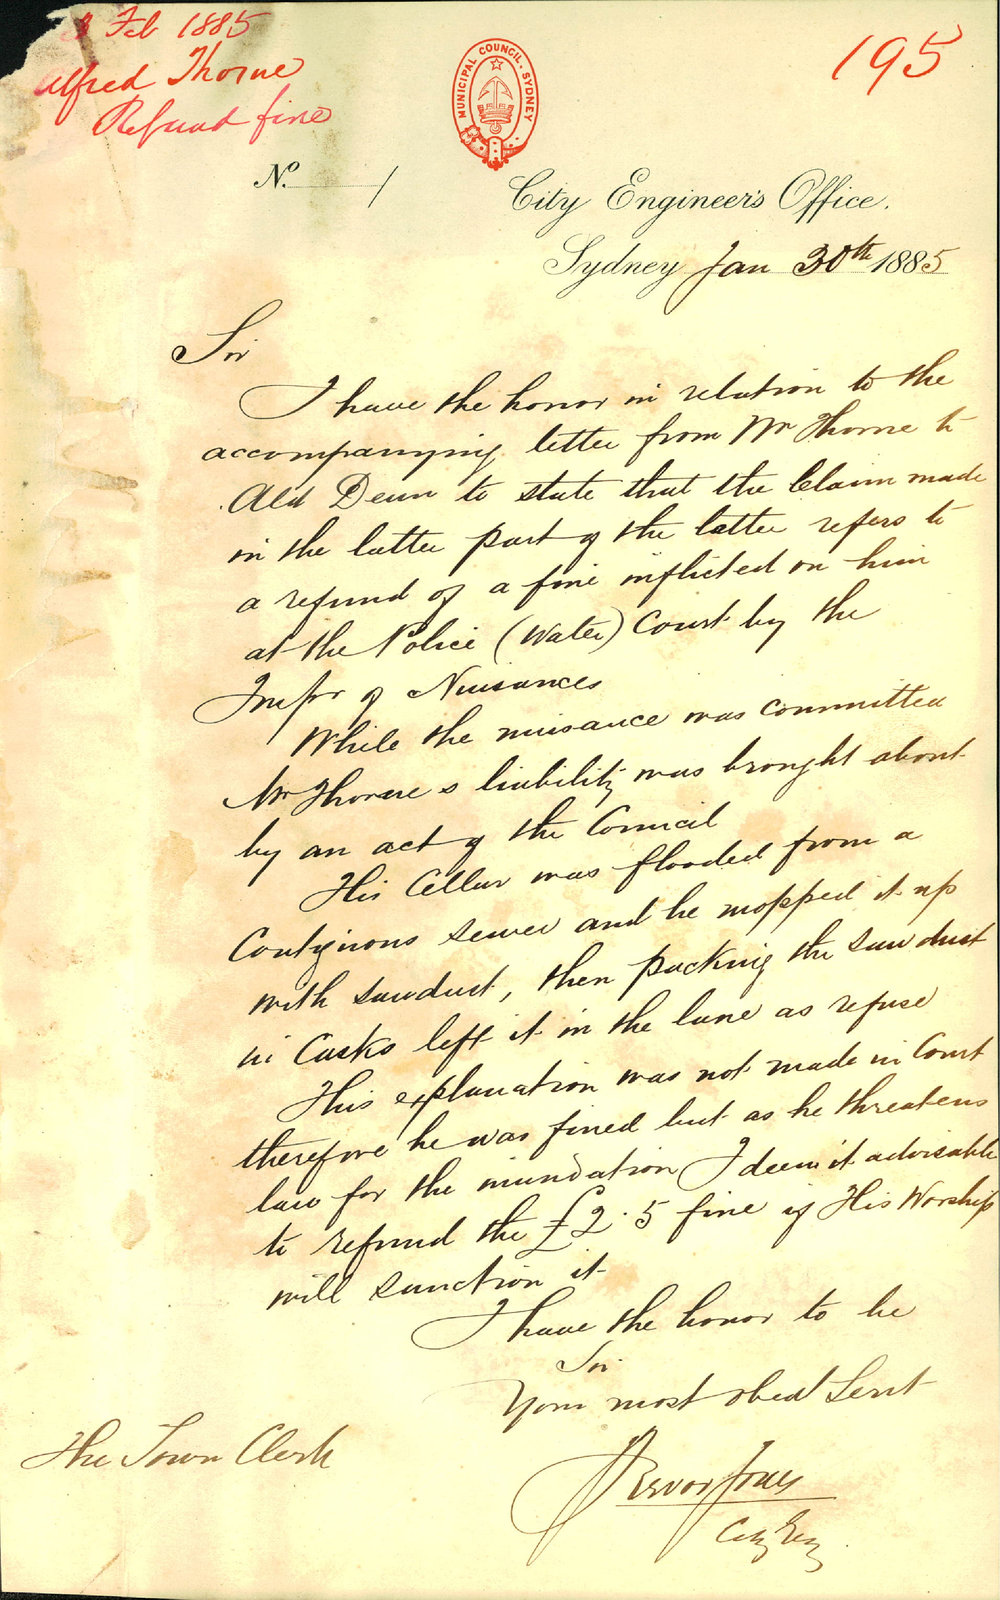 3 Feb 1885
Alfred Thorne
Refund fine
195
MUNICIPAL COUNCIL. SYDNEY
No. /
City Engineer's Office.
Sydney Jan 30th 1885
Sir
I have the honor in relation to the
accompanying letter from Mr Thorne to
Ald Dean to state that the Claim made
in the latter part of the letter refers to
a refund of a fine inflicted on him
at the Police (Water) Court by the
Inspr of Nuisances
While the nuisance was committed
Mr Thorne s liability was brought about
by an act of the Council
His Cellar was flooded from a
Contiguous sewer and he mopped it up
with sawdust, then packing the sawdust
in Casks left it in the lane as refuse
This explanation was not made in Court
therefore he was fined but as he threatens
law for the inundation I deem it advisable
to refund the £2.5 fine if His Worship
will sanction it
I have the honor to be
Sir
Your most obed Servt
Trevor Jones
City Eng
The Town Clerk